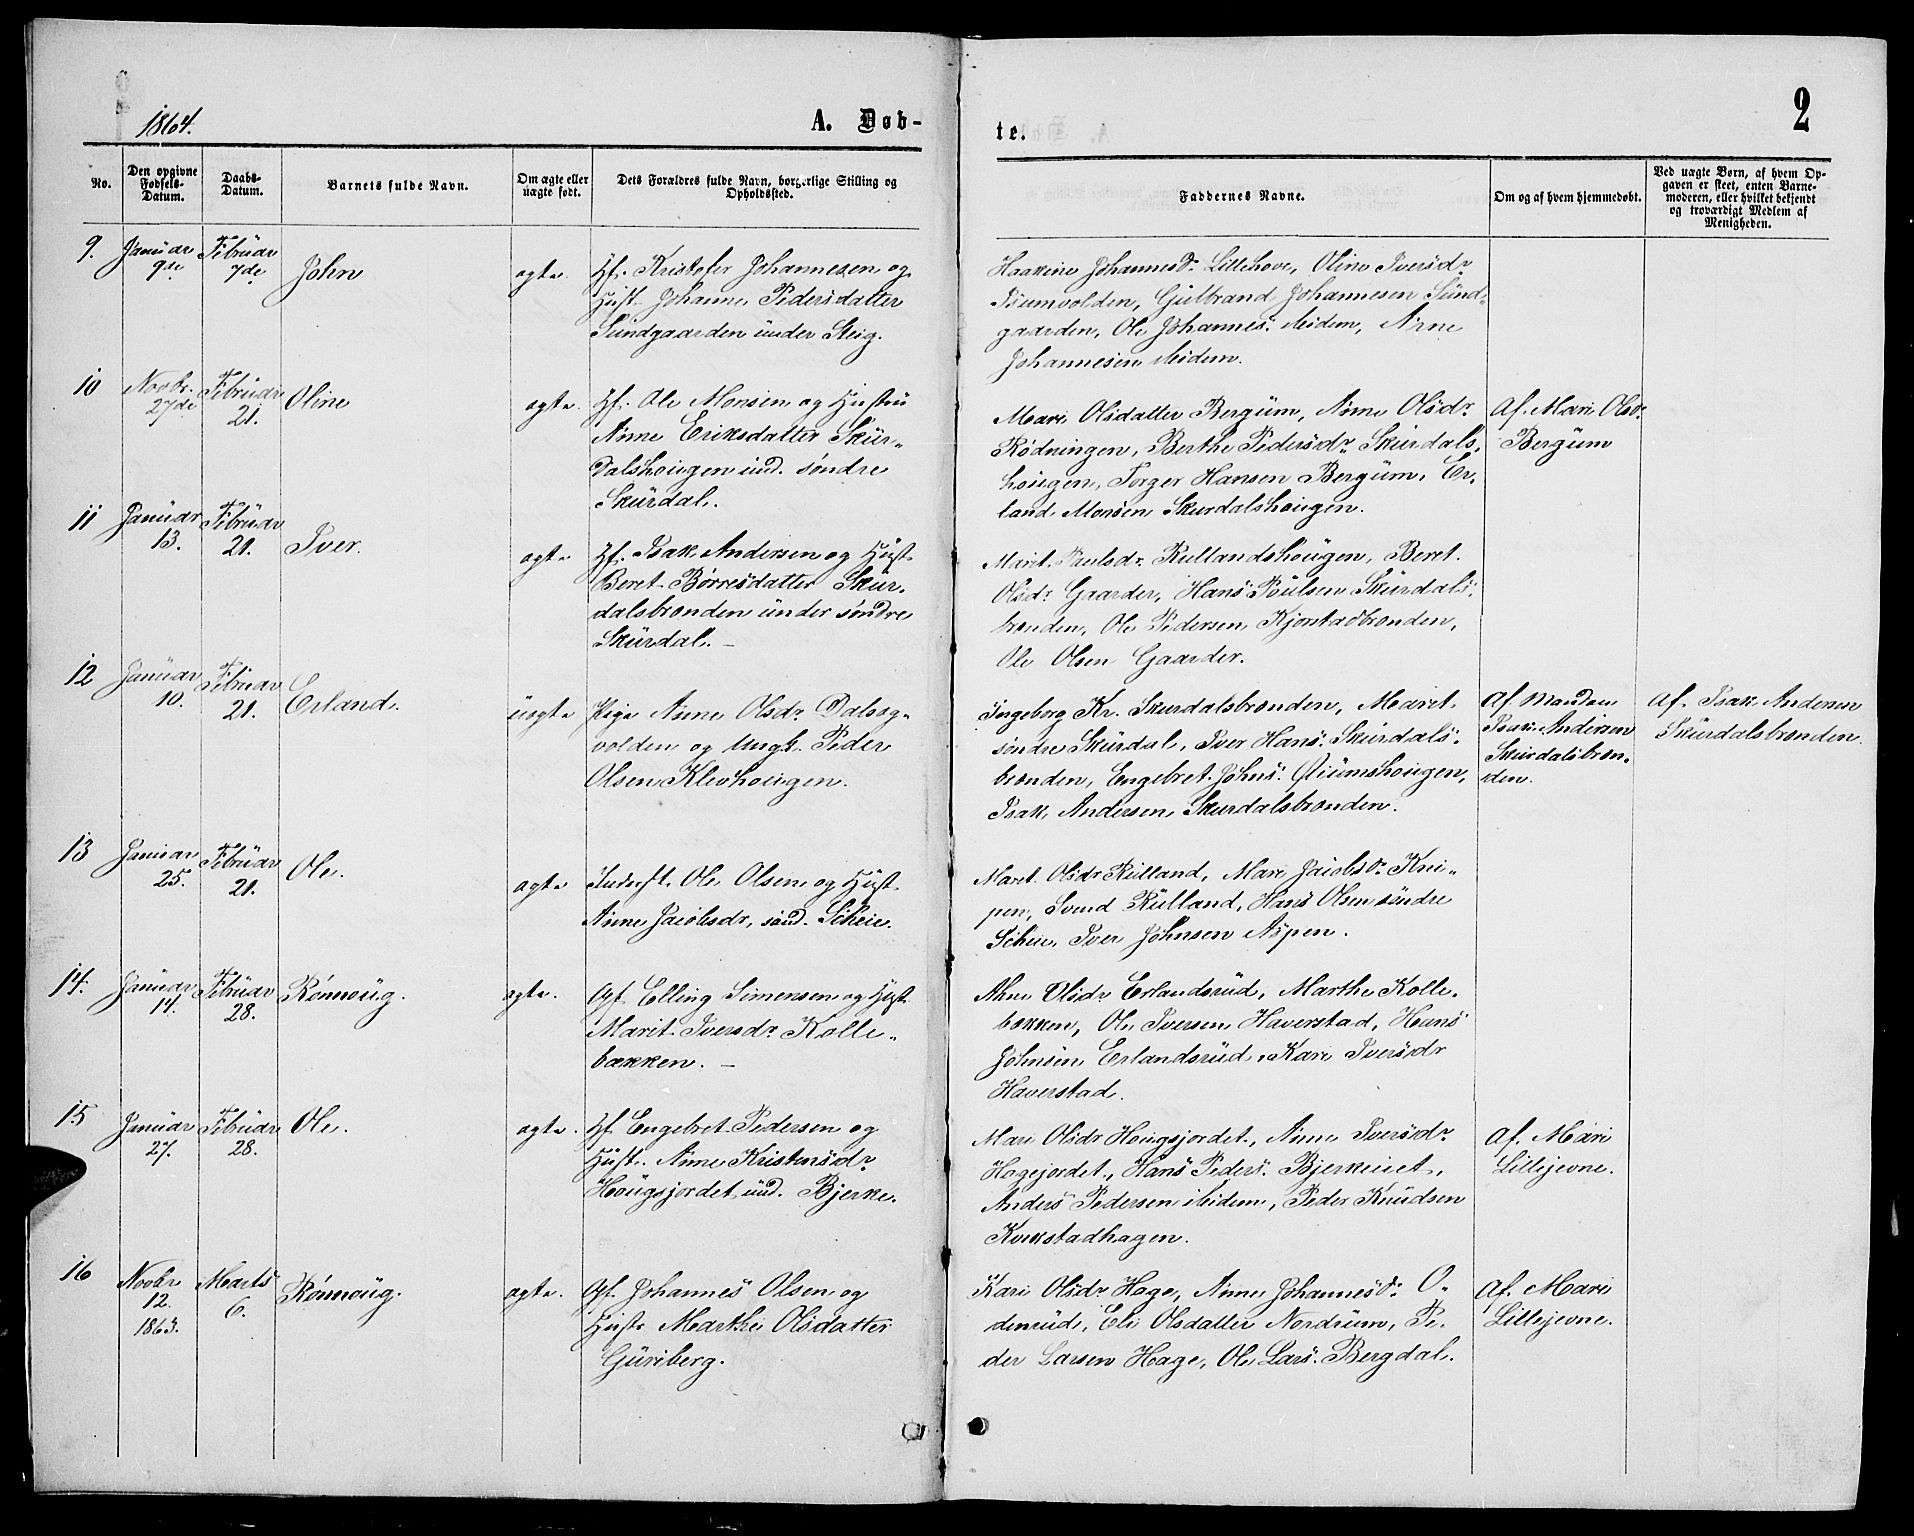 1864.
A. Døb-
te.
2
No.
Den opgivne
Fødsels-
Datum.
Daabs-
Datum.
Barnets fulde Navn.
Om ægte eller
uægte født.
Dets Forældres fulde Navn, borgerlige Stilling og
Opholdssted.
Faddernes Navne.
Om og af hvem hjemmedøbt.
Ved uægte Børn, af hvem Op-
gaven er skeet, enten Barne-
moderen, eller hvilket bekjendt
og troværdigt Medlem af
Menigheden.
9.
Januar
9de
Februar
7de
John
ægte.
Hf. Kristofer Johannesen og
Hust. Johanne Pedersdatter
Sundgaarden under Steig.
Haakine Johannesdr. Lillehove, Oline Iversdr.
Gulbrand Johannesen Sund-
gaarden, Ole Johannes. ibidem, Anne
Johannesen ibidem.
10
Novbr.
27de
Februar
21.
Oline
ægte.
Hf. Ole Monsen og Hustru
Anne Eriksdatter Skur-
dalshougen und. søndre
Skurdal.
Mari Olsdatter Bergum, Anne Olsdr.
Rødningen, Berthe Pedersdr. Skurdals-
hougen, Torger Hansen Bergum, Er-
land Monsen Skurdalshougen.
Af Mari Olsdr.
Bergum
11
Januar
13.
Februar
21.
Iver.
ægte
Hf. Isak Andersen og Hust.
Beret Børresdatter Skur-
dalsbrænden under søndre
Skurdal. —
Marit Paulsdr. Rullandshougen, Beret
Olsdr. Gaarder, Hans Poulsen Skurdals-
brænden, Ole Pedersen Kjorstadbrænden,
Ole Olsen Gaarder.
12
Januar
10.
Februar
21.
Erland.
uægte
Pige Anne Olsdr. Dalsæg-
volden og Ungk. Peder
Olsen Klevhougen.
Ingeborg Kr. Skurdalsbrænden, Maret
søndre Skurdal, Iver Hans. Skurdals-
brænden, Engebret Johns. Øiumshougen,
Isak Andersen Skurdalsbrænden.
Af Manden
Isak Andersen
Skurdalsbræn-
den.
Af Isak Andersen
Skurdalsbrænden.
13
Januar
25.
Februar
21.
Ole.
ægte
Inderst. Ole Olsen og Hust.
Anne Jacobsdr, sønd. Scheie.
Maret Olsdr Rulland, Mari Jacobsdr. Kni-
pen, Svend Rulland, Hans Olsen søndre
Scheie, Iver Johnsen Aspen.
14.
Januar
14.
Februar
28.
Rønnoug.
ægte.
Gf. Elling Simensen og Hust.
Marit Iversdr. Kolle-
bækken. —
Ahne Olsdr Erlandsrud, Marthe Kolle-
bækken, Ole Iversen Haverstad, Hans
Johnsen Erlandsrud, Kari Iversdr
Haverstad.
15
Januar
27.
Februar
28.
Ole.
ægte.
Hf. Engebret Pedersen og
Hust. Anne Kristensdr.
Hougsjordet und. Bjerke.
Mari Olsdr Hougsjordet, Anne Iversdr.
Hagejordet, Hans Peders. Bjerkeiet,
Anders Pedersen ibidem, Peder Knudsen
Kvikstadhagen.
Af Mari
Lillejevne.
16
Novbr
12.
1863.
Marts
6.
Rønnoug.
ægte.
Gf. Johannes Olsen og
Hust. Marthe Olsdatter
Guriberg.
Kari Olsdr Hage, Anne Johannesdr. O-
denrud, Eli Olsdatter Nordrum, Pe-
der Larsen Hage, Ole Lars. Bergdal.
Af Mari
Lillejevne.